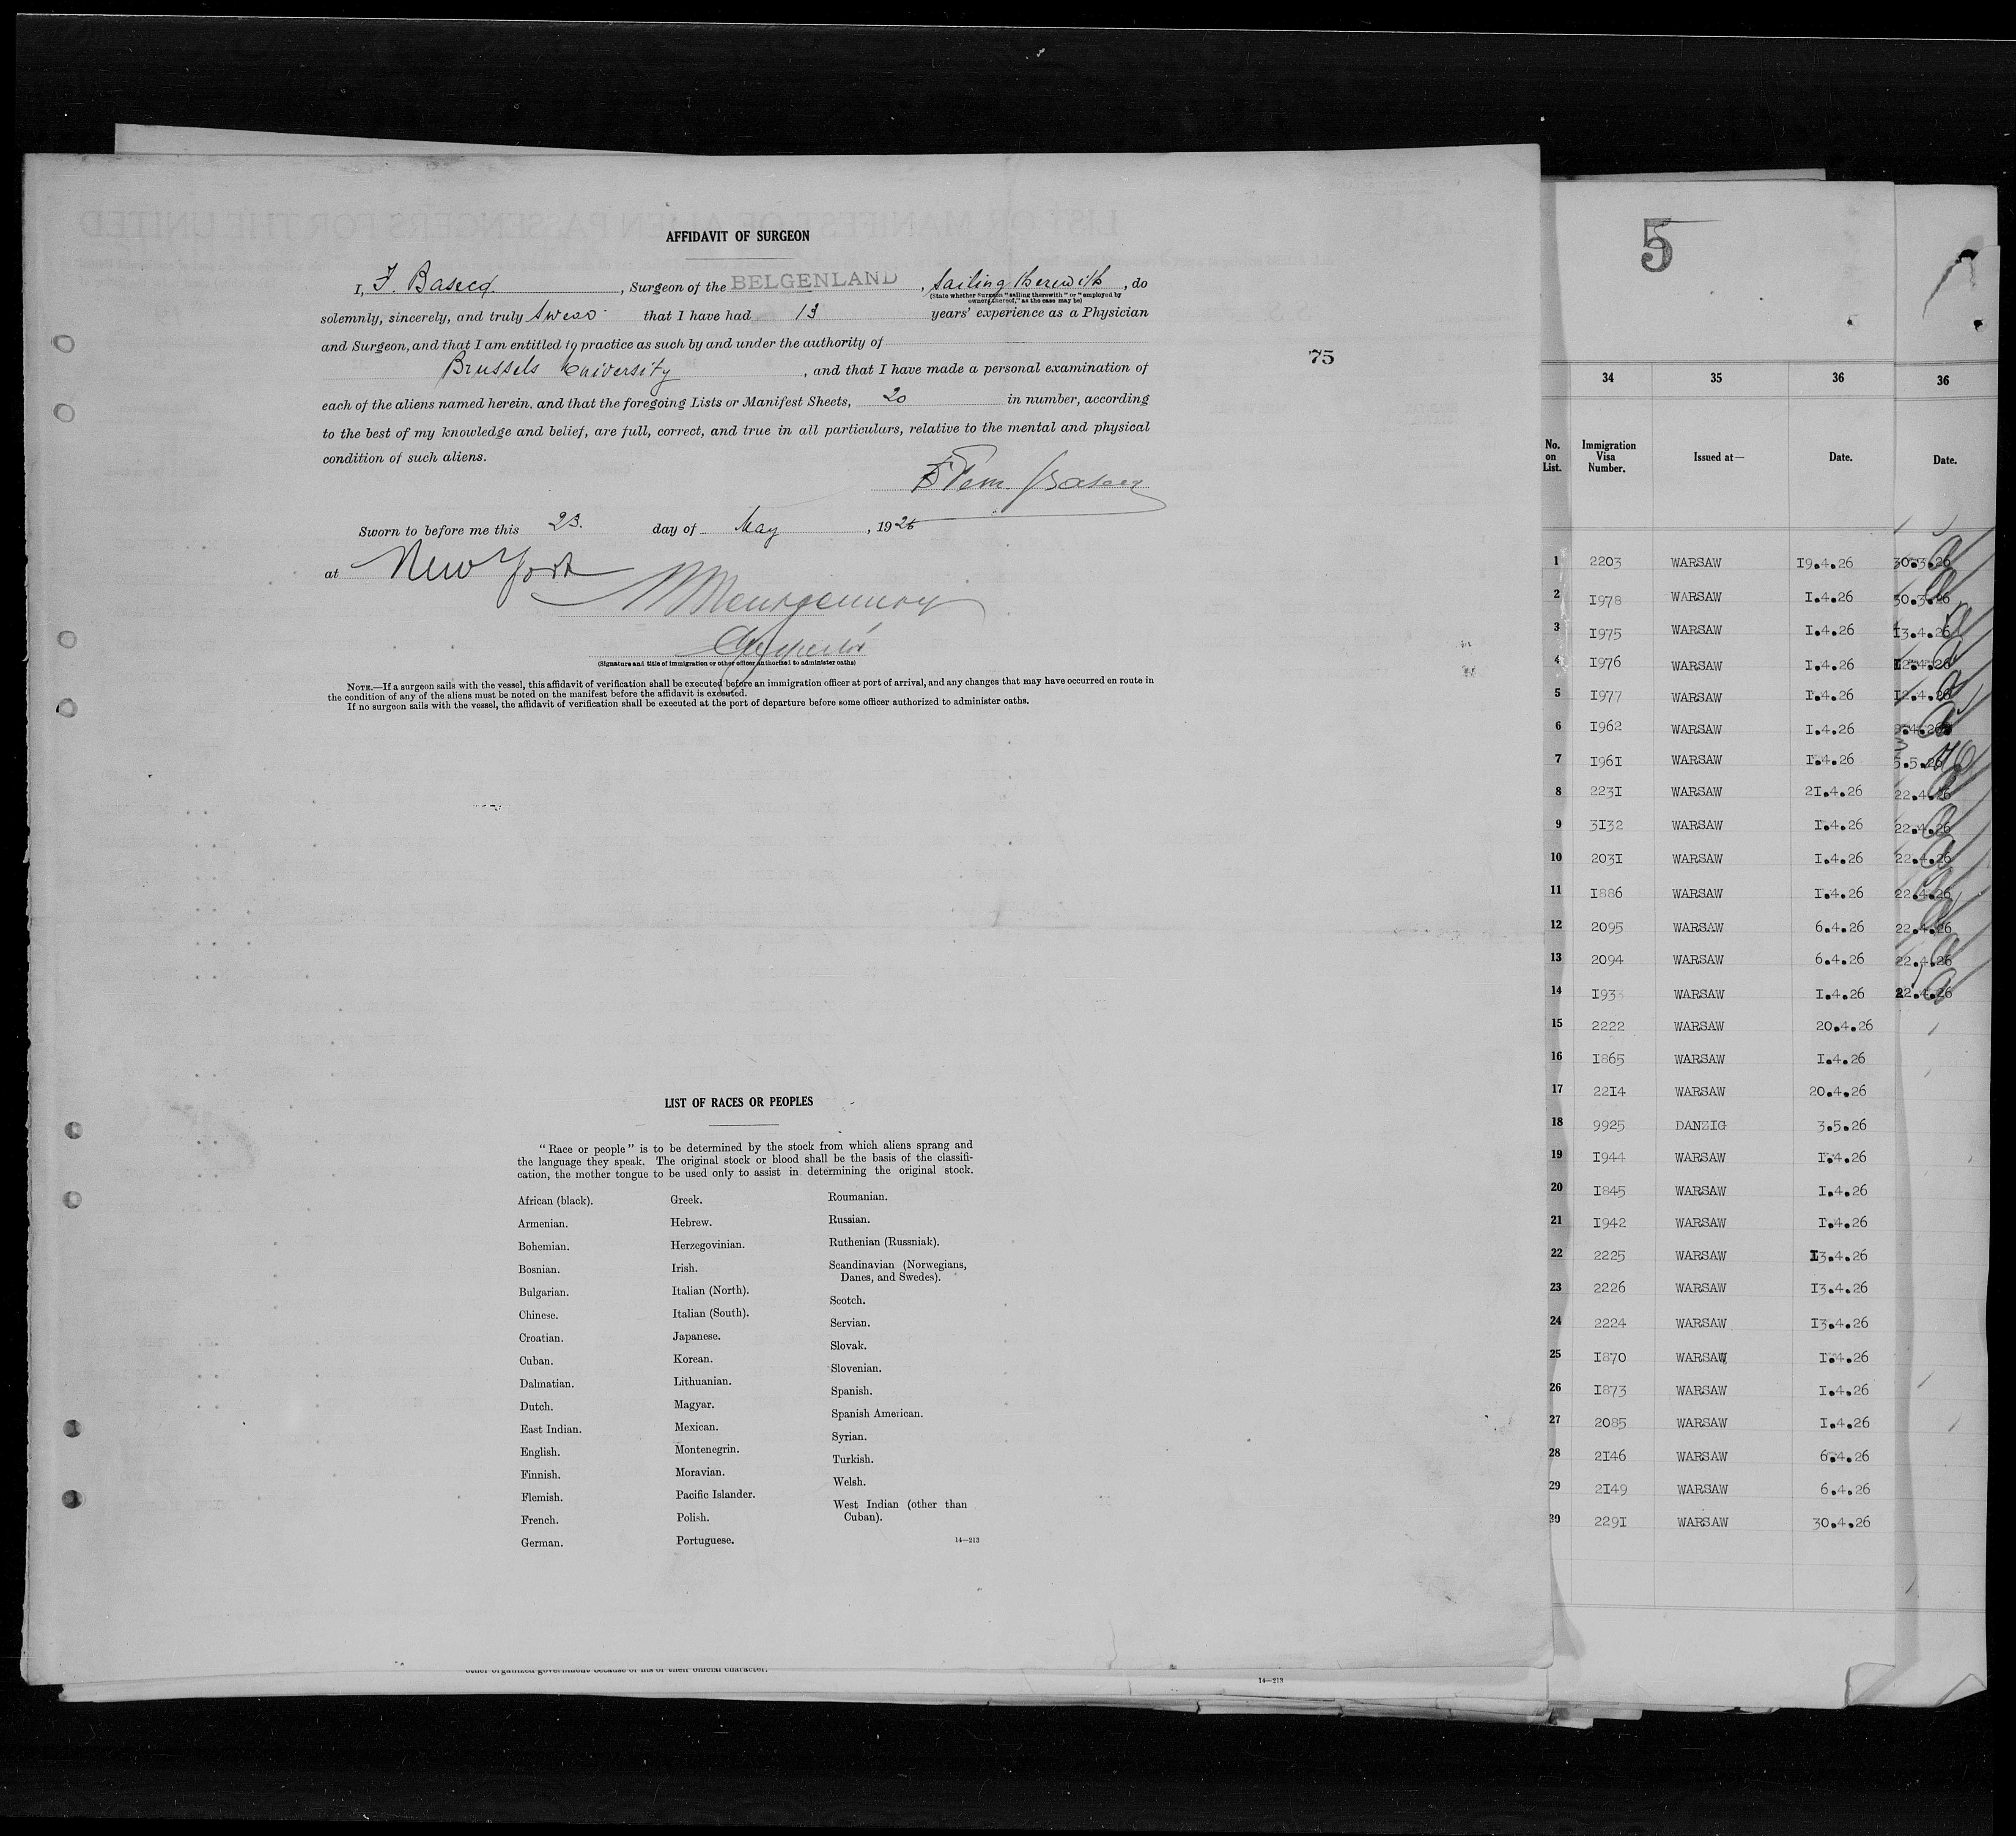 AFFIDAVIT OF SURGEON
I, F. Basecq, Surgeon of the BELGENLAND, Sailing therewith, do
(State whether Surgeon "sailing therewith" or "employed by
owners thereof," as the case may be)
solemnly, sincerely, and truly swear that I have had 13 years' experience as a Physician
and Surgeon, and that I am entitled to practice as such by and under the authority of
Brussels University, and that I have made a personal examination of
each of the aliens named herein, and that the foregoing Lists or Manifest Sheets, 20 in number, according
to the best of my knowledge and belief, are full, correct, and true in all particulars, relative to the mental and physical
condition of such aliens.
Basecq
Sworn to before me this 23. day of May, 1926
at New York
Montgomery
Inspector
(Signature and title of immigration or other officer authorized to administer oaths)
NOTE.—If a surgeon sails with the vessel, this affidavit of verification shall be executed before an immigration officer at port of arrival, and any changes that may have occurred en route in
the condition of any of the aliens must be noted on the manifest before the affidavit is executed.
If no surgeon sails with the vessel, the affidavit of verification shall be executed at the port of departure before some officer authorized to administer oaths.
75
LIST OF RACES OR PEOPLES
"Race or people" is to be determined by the stock from which aliens sprang and
the language they speak. The original stock or blood shall be the basis of the classifi-
cation, the mother tongue to be used only to assist in determining the original stock.
African (black).
Armenian.
Bohemian.
Bosnian.
Bulgarian.
Chinese.
Croatian.
Cuban.
Dalmatian.
Dutch.
East Indian.
English.
Finnish.
Flemish.
French.
German.
Greek.
Hebrew.
Herzegovinian.
Irish.
Italian (North).
Italian (South).
Japanese.
Korean.
Lithuanian.
Magyar.
Mexican.
Montenegrin.
Moravian.
Pacific Islander.
Polish.
Portuguese.
Roumanian.
Russian.
Ruthenian (Russniak).
Scandinavian (Norwegians,
Danes, and Swedes).
Scotch.
Servian.
Slovak.
Slovenian.
Spanish.
Spanish American.
Syrian.
Turkish.
Welsh.
West Indian (other than
Cuban).
14—213
other organized government because of his or their official character.
14—213
5
34 35 36
No. on List. Immigration Visa Number. Issued at— Date.
1 2203 WARSAW I9.4.26
2 I978 WARSAW I.4.26
3 I975 WARSAW I.4.26
4 I976 WARSAW I.4.26
5 I977 WARSAW I.4.26
6 I962 WARSAW I.4.26
7 I96I WARSAW I.4.26
8 223I WARSAW 2I.4.26
9 3I32 WARSAW I.4.26
10 203I WARSAW I.4.26
11 I886 WARSAW I.4.26
12 2095 WARSAW 6.4.26
13 2094 WARSAW 6.4.26
14 WARSAW I.4.26
15 2222 WARSAW 20.4.26
16 I865 WARSAW I.4.26
17 22I4 WARSAW 20.4.26
18 9925 DANZIG 3.5.26
19 I944 WARSAW I.4.26
20 I845 WARSAW I.4.26
21 I942 WARSAW I.4.26
22 2225 WARSAW I3.4.26
23 2226 WARSAW I3.4.26
24 2224 WARSAW I3.4.26
25 I870 WARSAW I.4.26
26 I873 WARSAW I.4.26
27 2085 WARSAW I.4.26
28 2I46 WARSAW 6.4.26
29 2I49 WARSAW 6.4.26
30 229I WARSAW 30.4.26
36
Date.
30.3.26
30.3.26
I3.4.26
I2.4.26
I2.4.26
5.5.26
22.4.26
22.4.26
22.4.26
22.4.26
22.4.26
22.4.26
22.4.26